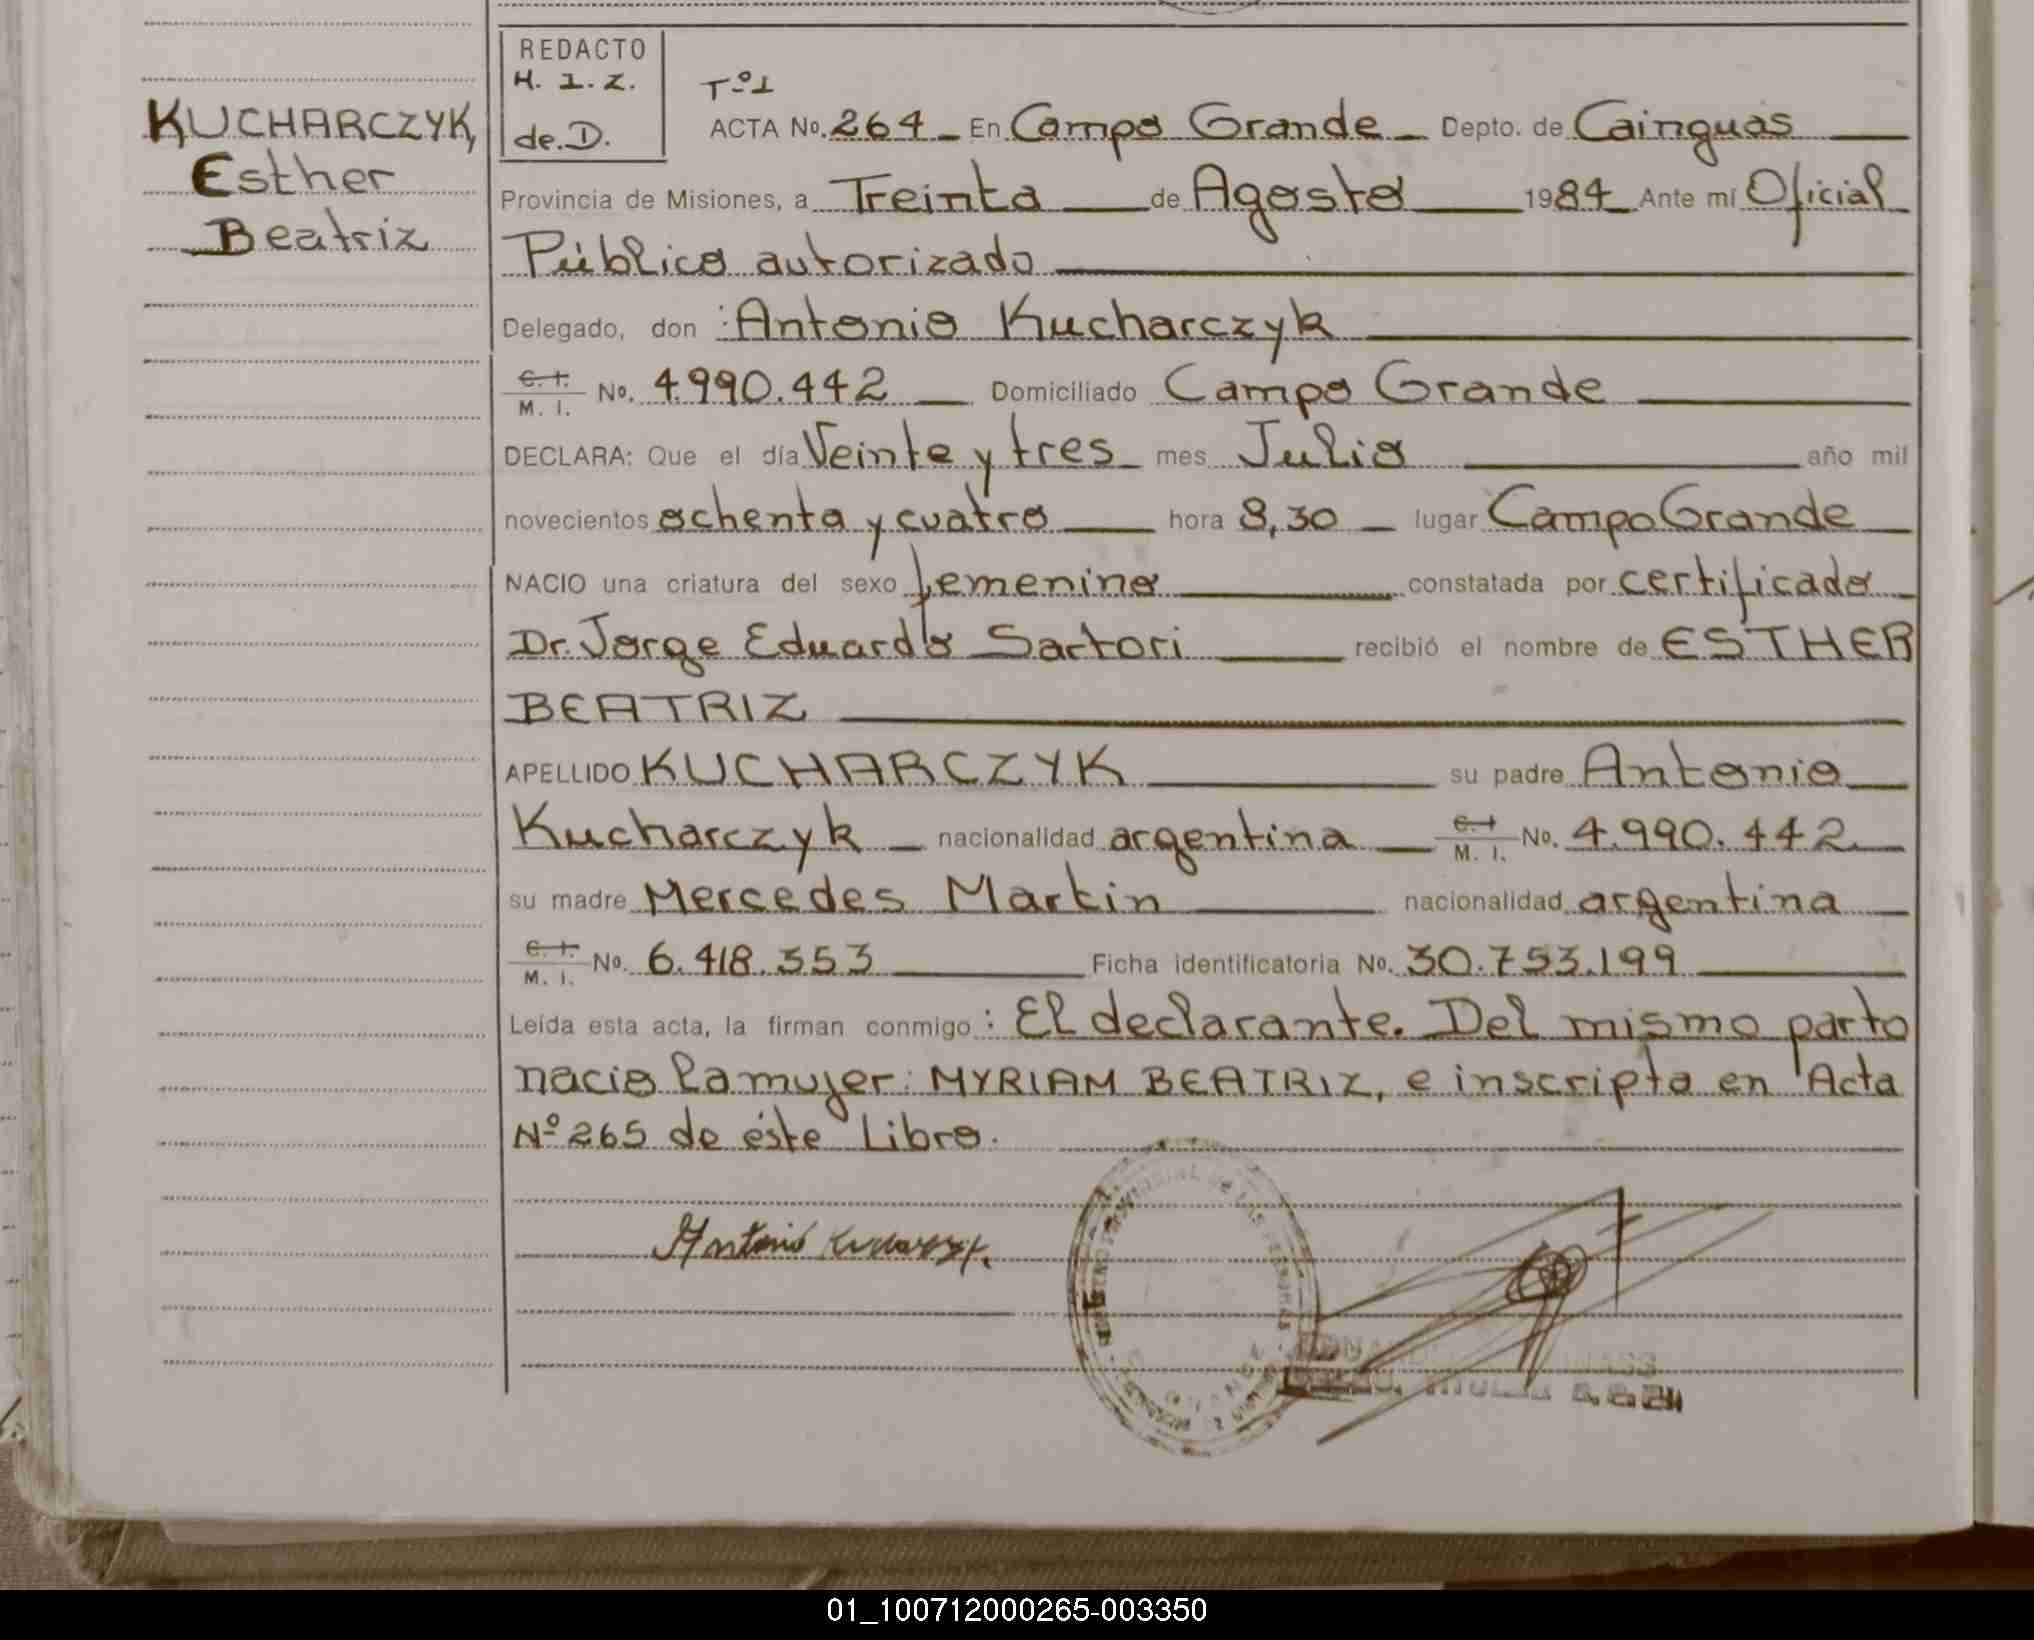 KUCHARCZYK,
Esther
Beatriz
REDACTO
H. I. Z.
de. D.
Tº1
ACTA No. 264 En Campo Grande Depto. de Cainguas
Provincia de Misiones, a Treinta de Agosto 1984 Ante mí Oficial
Público autorizado
Delegado, don : Antonio Kucharczyk
C. I. / M. I. No. 4.990.442 Domiciliado Campo Grande
DECLARA: Que el día Veinte y tres mes Julio año mil
novecientos ochenta y cuatro hora 8,30 lugar Campo Grande
NACIO una criatura del sexo femenino constatada por certificado
Dr. Jorge Eduardo Sartori recibió el nombre de ESTHER
BEATRIZ
APELLIDO KUCHARCZYK su padre Antonio
Kucharczyk nacionalidad argentina C. I / M. I. No. 4.990.442
su madre Mercedes Martin nacionalidad argentina
C. I. / M. I. No. 6.418.353 Ficha identificatoria No. 30.753.199
Leída esta acta, la firman conmigo : El declarante. Del mismo parto
nacio la mujer: MYRIAM BEATRIZ, e inscripta en Acta
Nº 265 de éste Libro.
Antonio Kucharczyk.
01_100712000265-003350